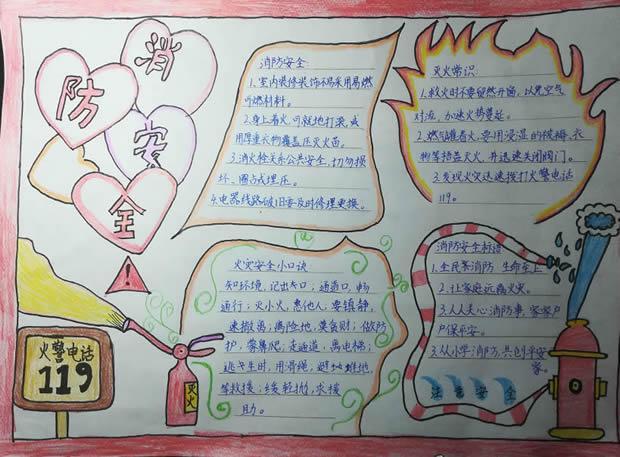 消
防
安
全
消防安全:
1.室内装修装饰不易采用易燃
可燃材料。
2.身上着火,可就地打滚,或
用厚重衣物覆盖压灭火苗。
3.消火栓关系公共安全,切勿损
坏、圈占或埋压。
4.电器线路破旧要及时修理更换。
灭火常识:
1.救火时不要贸然开窗,以免空气
对流,加速火势蔓延。
2.燃气罐着火,要用浸湿的被褥、衣
物等捂盖灭火,并迅速关闭阀门。
3.发现火灾迅速拨打火警电话
119。
火灾安全小口诀
知环境,记出口;通道口,畅
通行;灭小火,惠他人;要镇静,
速撤离;离险地,莫贪财;做防
护,靠鼻爬;走通道,离电梯;
逃生时,用滑绳;避
等救援;缓轻抛,求援
助。
消防安全标语
1.全民系消防 生命至上
2.让家庭远离火灾。
3.人人关心消防事,家家户
户保平安。
3.从小学消防,共创平安
家。
注意安全
火警电话
119
灭火